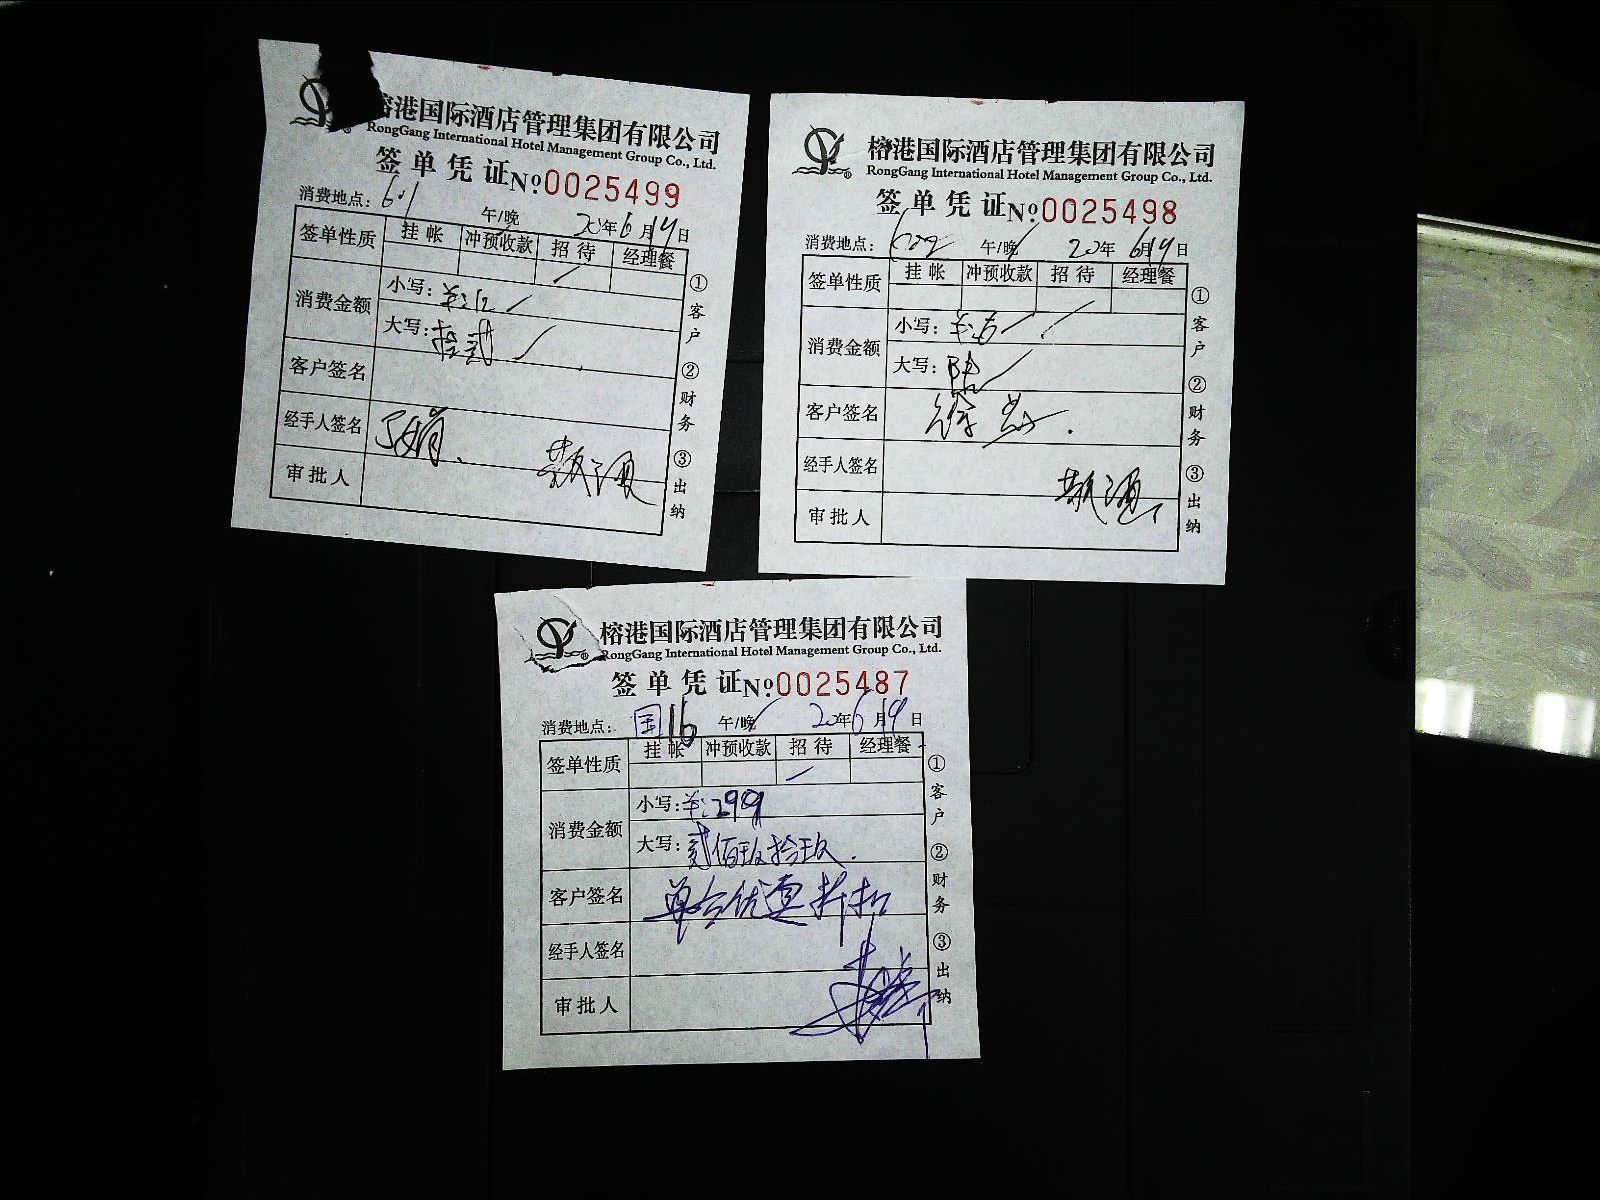 榕港国际酒店管理集团有限公司
RongGang International Hotel Management Group Co., Ltd.
签单凭证 No 0025499
消费地点: 601 午/晚 20年6月19日
签单性质 挂帐 冲预收款 招待 经理餐
消费金额 小写: ¥:12
大写: 拾贰
客户签名
经手人签名
审批人
①客户 ②财务 ③出纳
榕港国际酒店管理集团有限公司
RongGang International Hotel Management Group Co., Ltd.
签单凭证 No 0025498
消费地点: 午/晚 20年6月19日
签单性质 挂帐 冲预收款 招待 经理餐
消费金额 小写: ¥:6
大写: 陆
客户签名
经手人签名
审批人
①客户 ②财务 ③出纳
榕港国际酒店管理集团有限公司
RongGang International Hotel Management Group Co., Ltd.
签单凭证 No 0025487
消费地点: 国16 午/晚 20年6月19日
签单性质 挂帐 冲预收款 招待 经理餐
消费金额 小写: ¥:299
大写: 贰佰玖拾玖.
客户签名 优惠折扣
经手人签名
审批人
①客户 ②财务 ③出纳